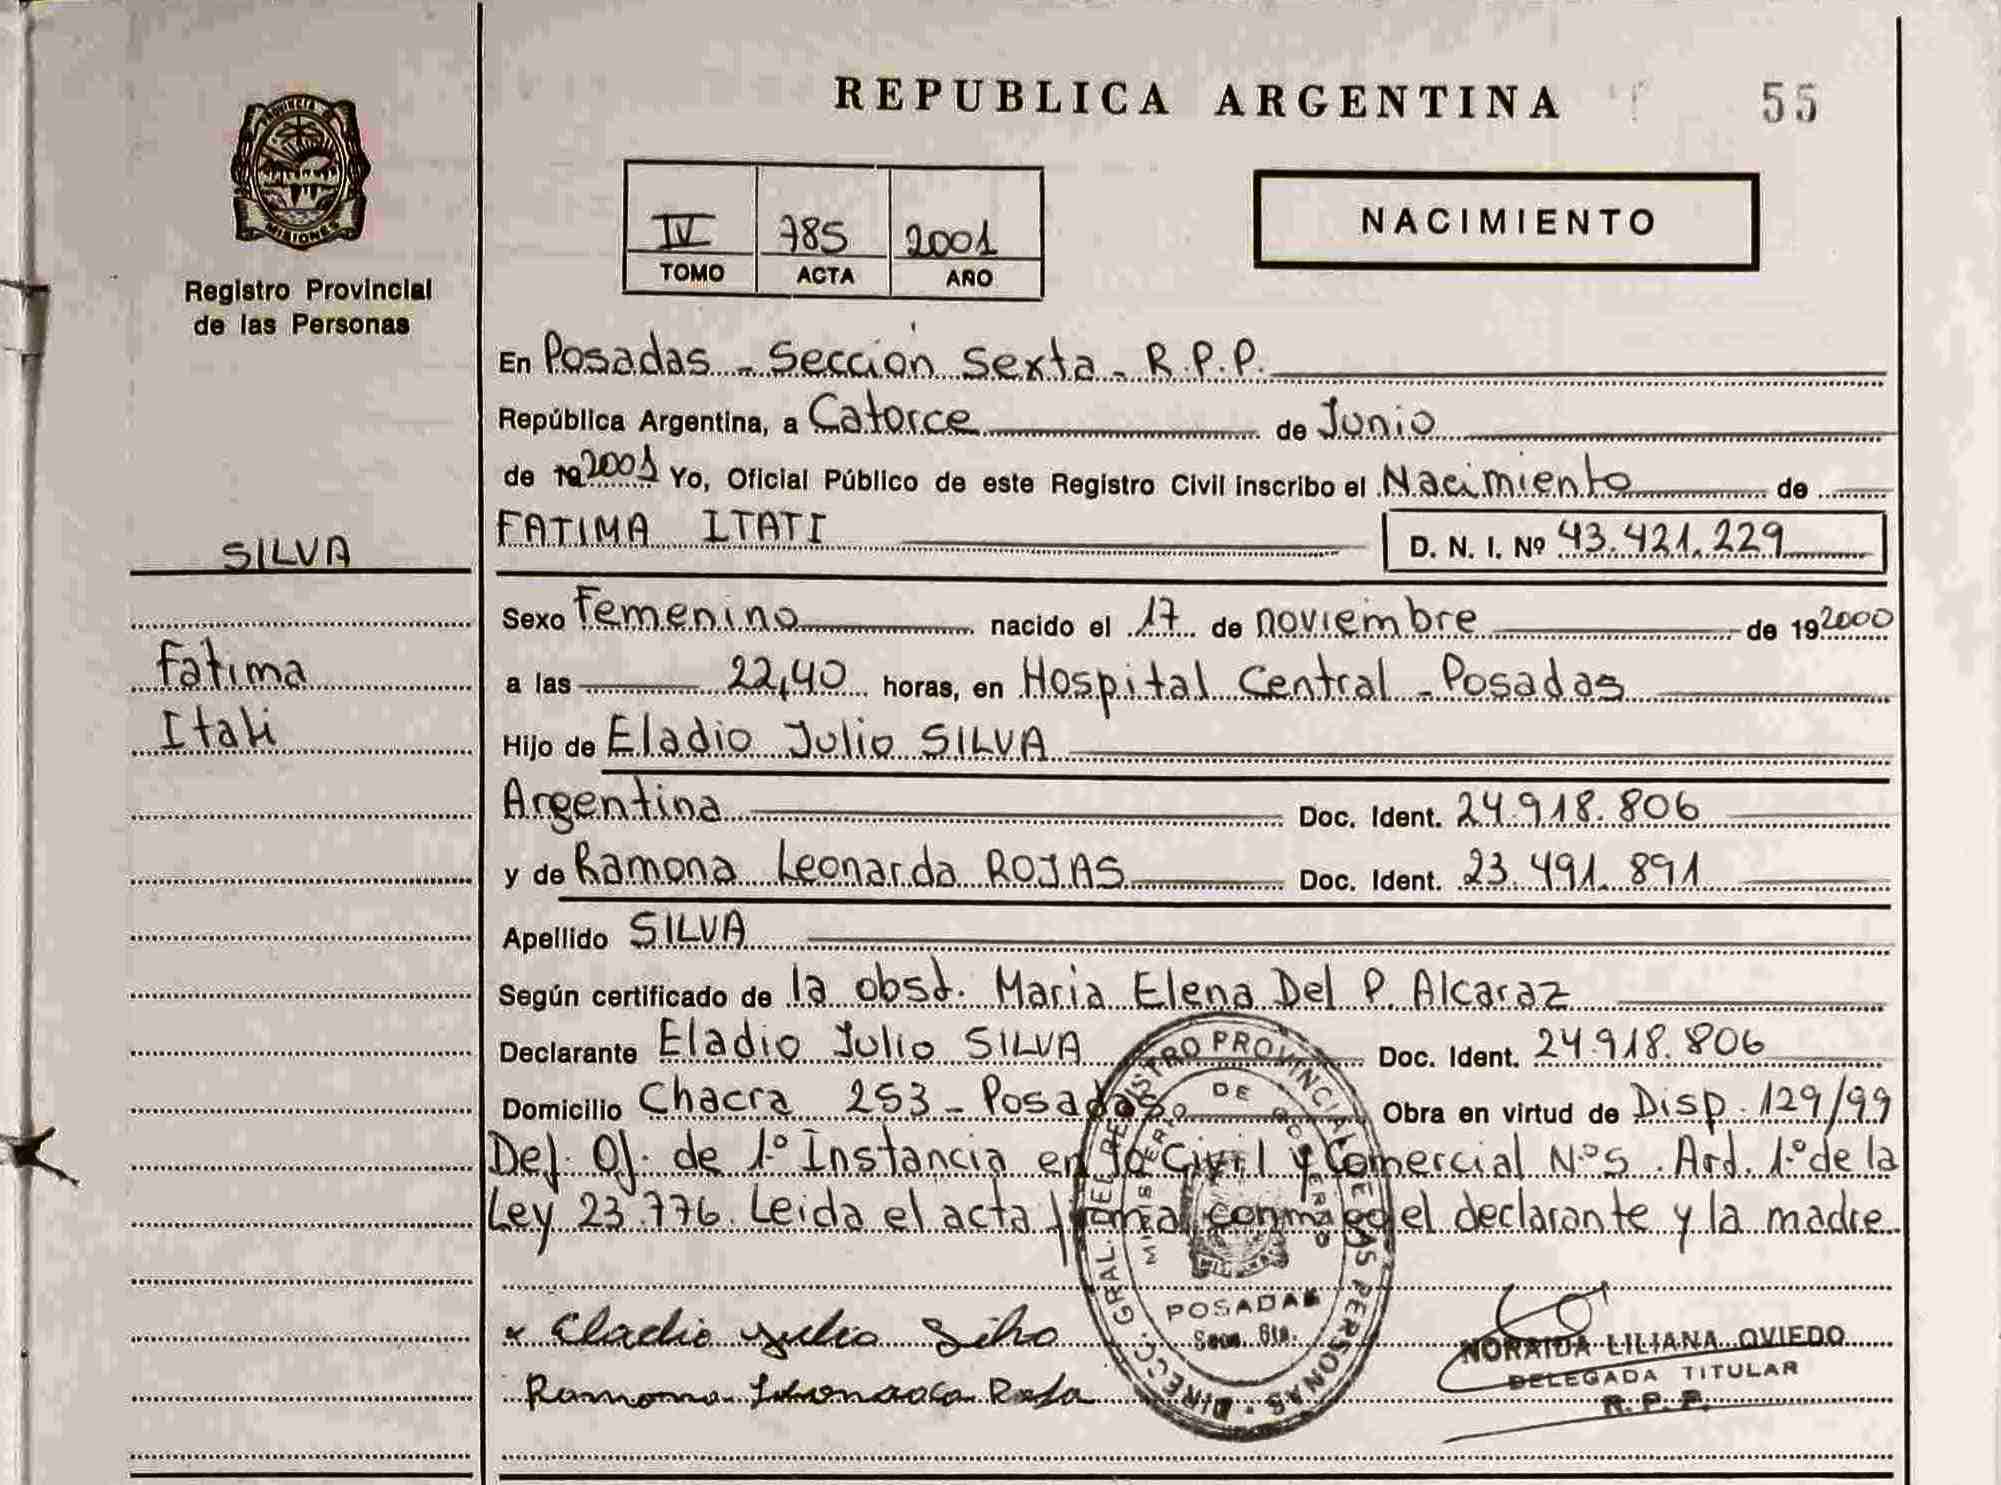 REPUBLICA ARGENTINA
55
PROVINCIA DE
MISIONES
Registro Provincial
de las Personas
IV 785 2001
TOMO ACTA AÑO
NACIMIENTO
En Posadas - Sección Sexta - R.P.P.
República Argentina, a Catorce de Junio
de 19 2001 Yo, Oficial Público de este Registro Civil inscribo el Nacimiento de
FATIMA ITATI D. N. I. Nº 43.421.229
SILVA
Fatima
Itati
Sexo Femenino nacido el 17 de noviembre de 19 2000
a las 22,40 horas, en Hospital Central - Posadas
Hijo de Eladio Julio SILVA
Argentina Doc. Ident. 24.918.806
y de Ramona Leonarda ROJAS Doc. Ident. 23.491.891
Apellido SILVA
Según certificado de la obst. Maria Elena Del P. Alcaraz
Declarante Eladio Julio SILVA Doc. Ident. 24.918.806
Domicilio Chacra 253 - Posadas Obra en virtud de Disp. 129/99
Def. Of. de 1º Instancia en lo Civil y Comercial Nº5. Art. 1º de la
Ley 23.776. Leida el acta firma conmigo el declarante y la madre
Eladio Julio Silva
Ramona Leonarda
DIRECC. GRAL. DEL REGISTRO PROVINCIAL DE LAS PERSONAS
MINISTERIO DE GOBIERNO
POSADAS
Secc. 6ta.
NORAIDA LILIANA OVIEDO
DELEGADA TITULAR
R. P. P.